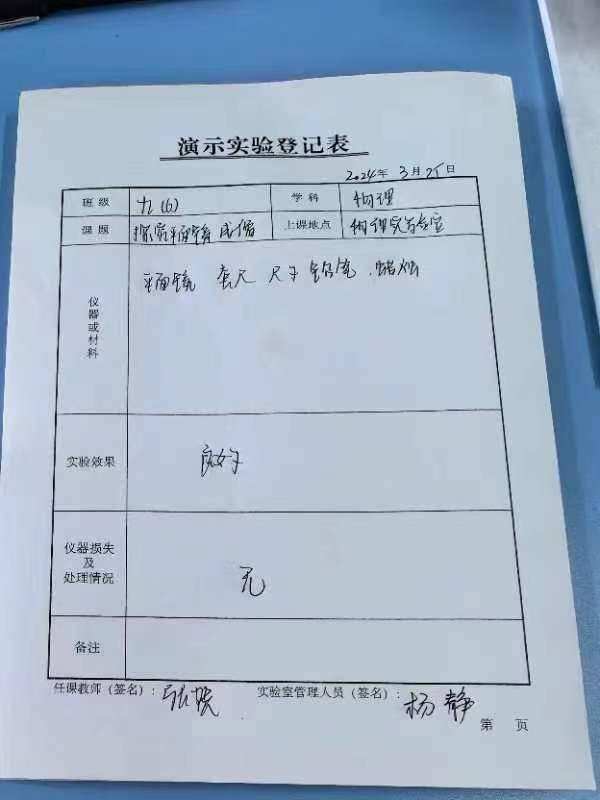 演示实验登记表
2024年3月25日
班级 九(6) 学科 物理
课题 探究平面镜成像 上课地点 物理实验室
仪器或材料 平面镜 直尺 尺子 铅笔 蜡烛
实验效果 良好
仪器损失及处理情况 无
备注
任课教师(签名): 张 实验室管理人员(签名): 杨静
第 页